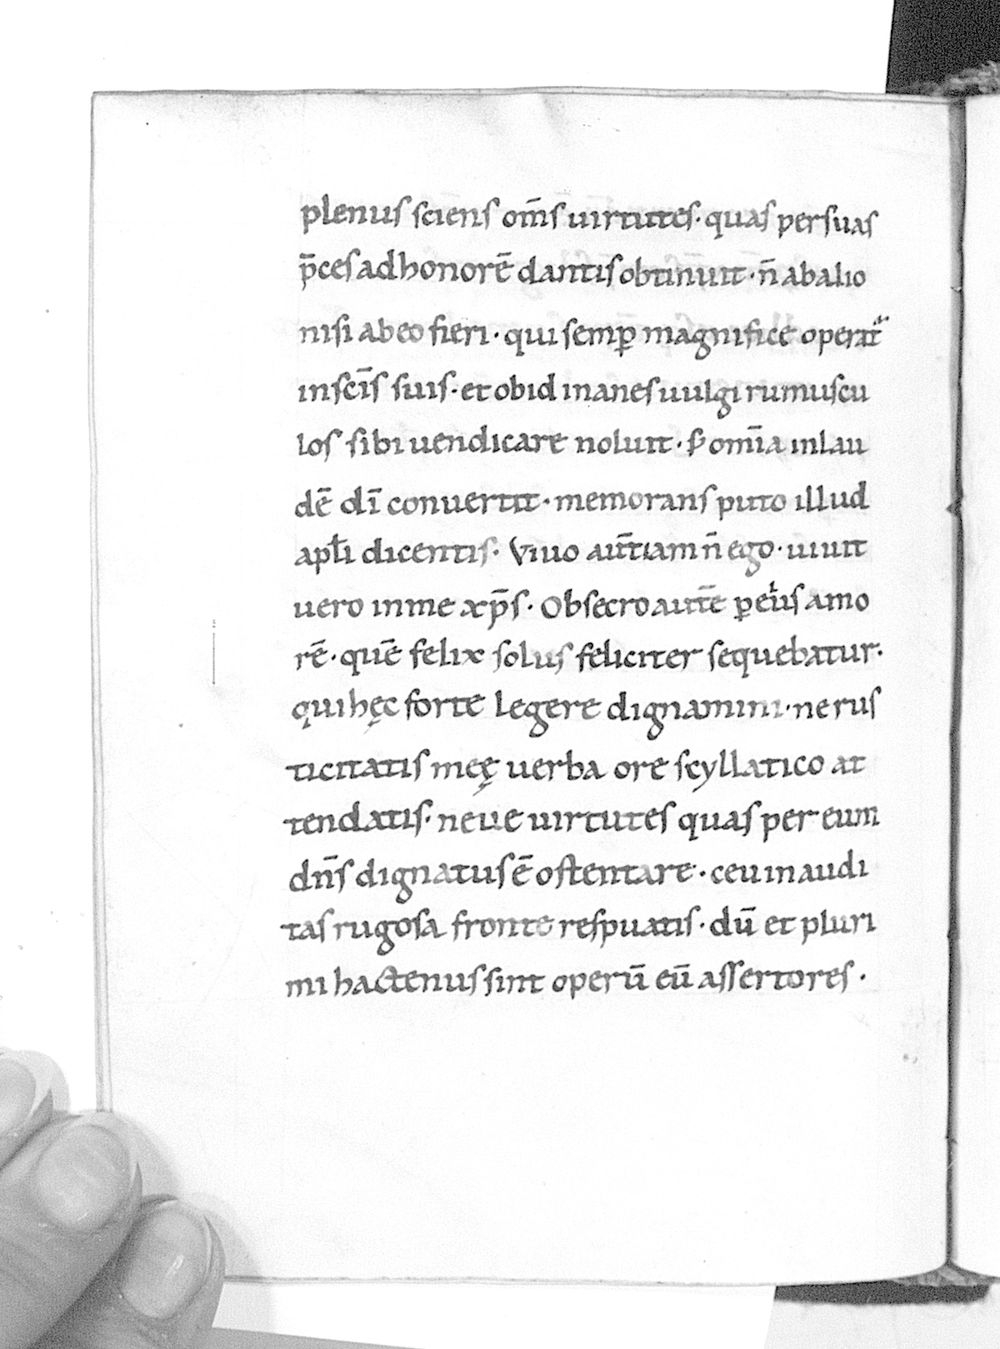 plenus sciens om̅s uirtutes· quas per suas
p̅ces ad honorē dantis obtinuit· n̄ ab alio
nisi ab eo fieri· qui semꝑ magnifice operat᷑
in sc̄is suis· et ob id inanes uulgi rumuscu
los sibi uendicare noluit· s; om̄ia in lau
dē dī conuertit· memorans puto illud
apłi dicentis· Viuo aut̄ iam n̄ ego· uiuit
uero in me xp̄s· Obsecro autē ꝑ ei᷒us amo
rē· quē felix solus feliciter sequebatur·
qui hęc forte legere dignamini· ne rus
ticitatis meę uerba ore scyllatico at
tendatis· neue uirtutes quas per eum
dn̄s dignatus ē ostentare· ceu inaudi
tas rugosa fronte respuatis· dū et pluri
mi hactenus sint operū eū assertores·